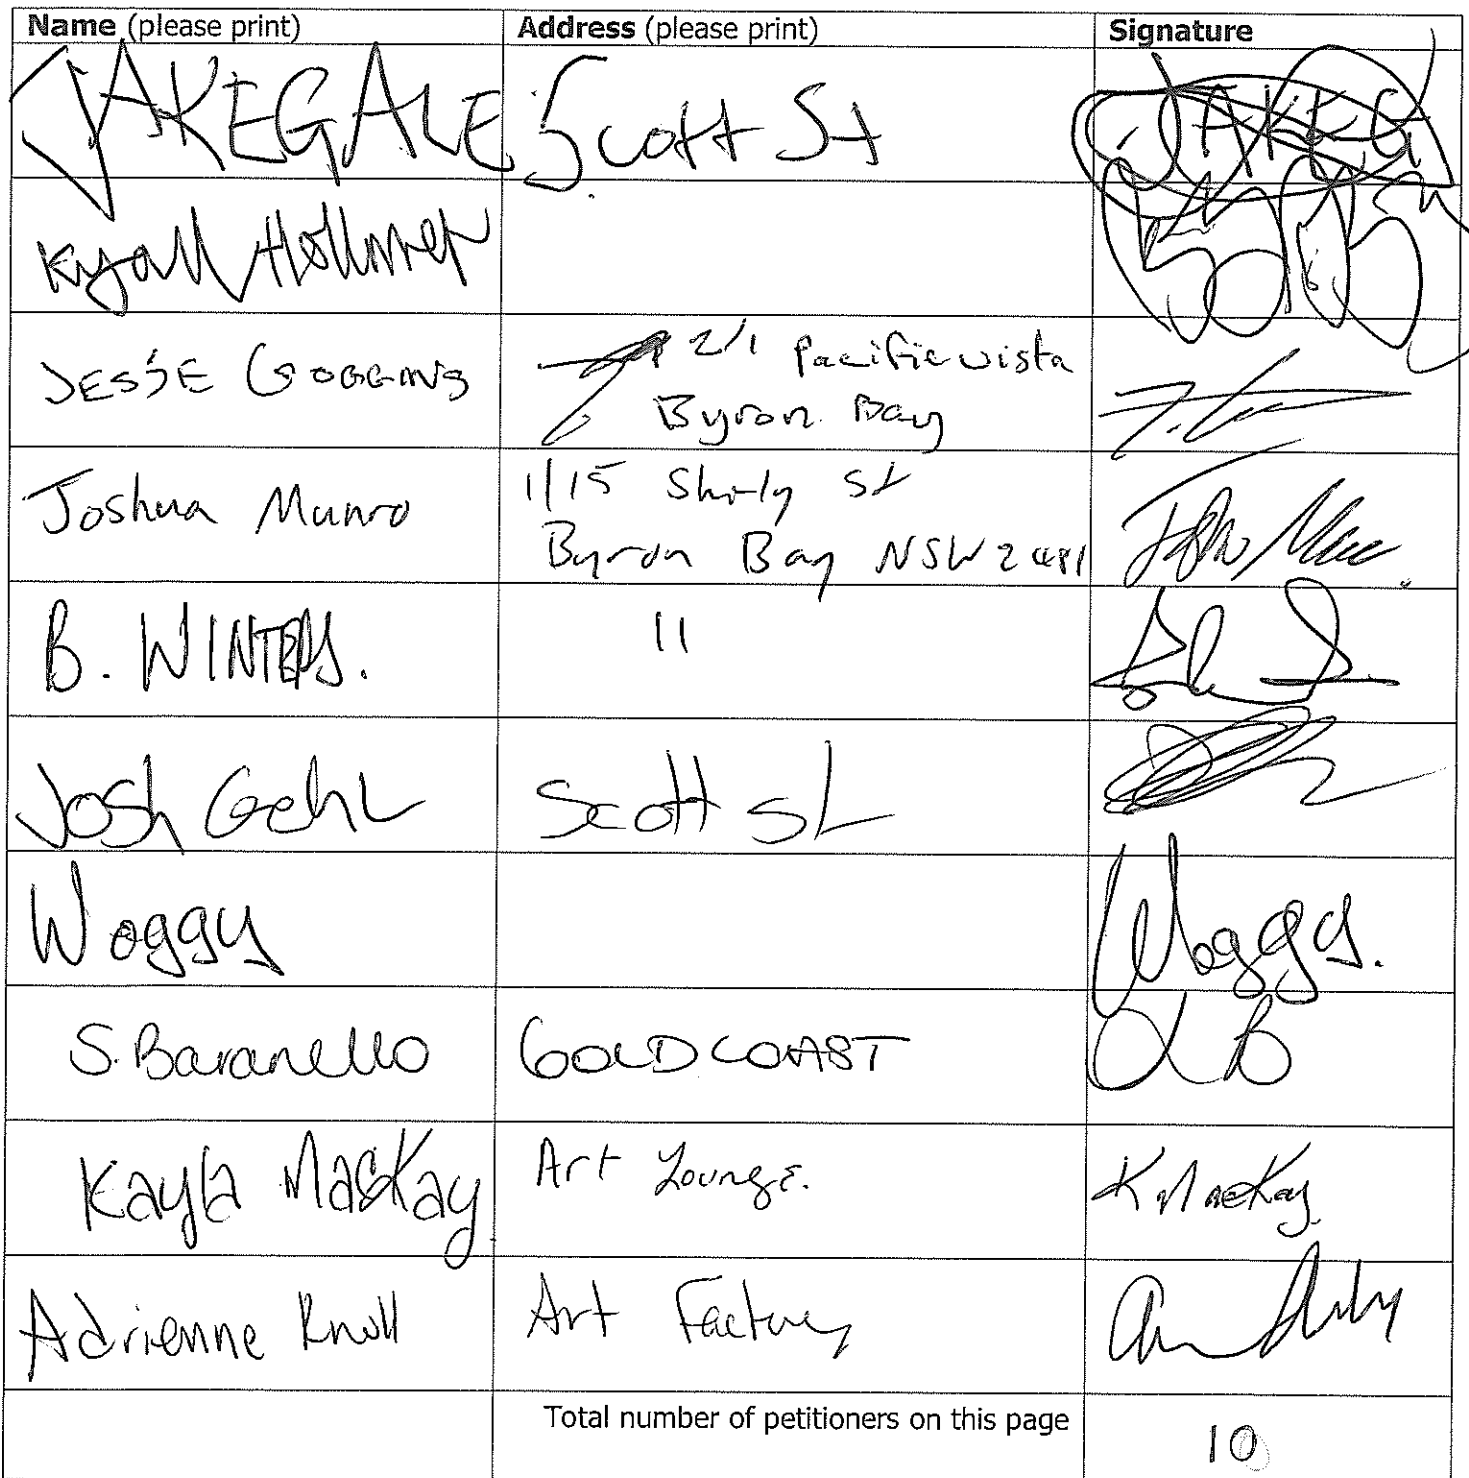 Name (please print) Address (please print) Signature
JAKEGALE Scott St JAKEG
Kyall
JESSE GOGGINS 2/1 pacific vista
Byron Bay
Joshua Munro 1/15 St
Byron Bay NSW 2481
B. WINTERS. 11
Josh Gehl Scott St
Woggy Woggy.
S. Baranello GOLD COAST
Kayla MacKay Art Lounge. K MacKay.
Adrienne Knoll Art Factory
Total number of petitioners on this page 10